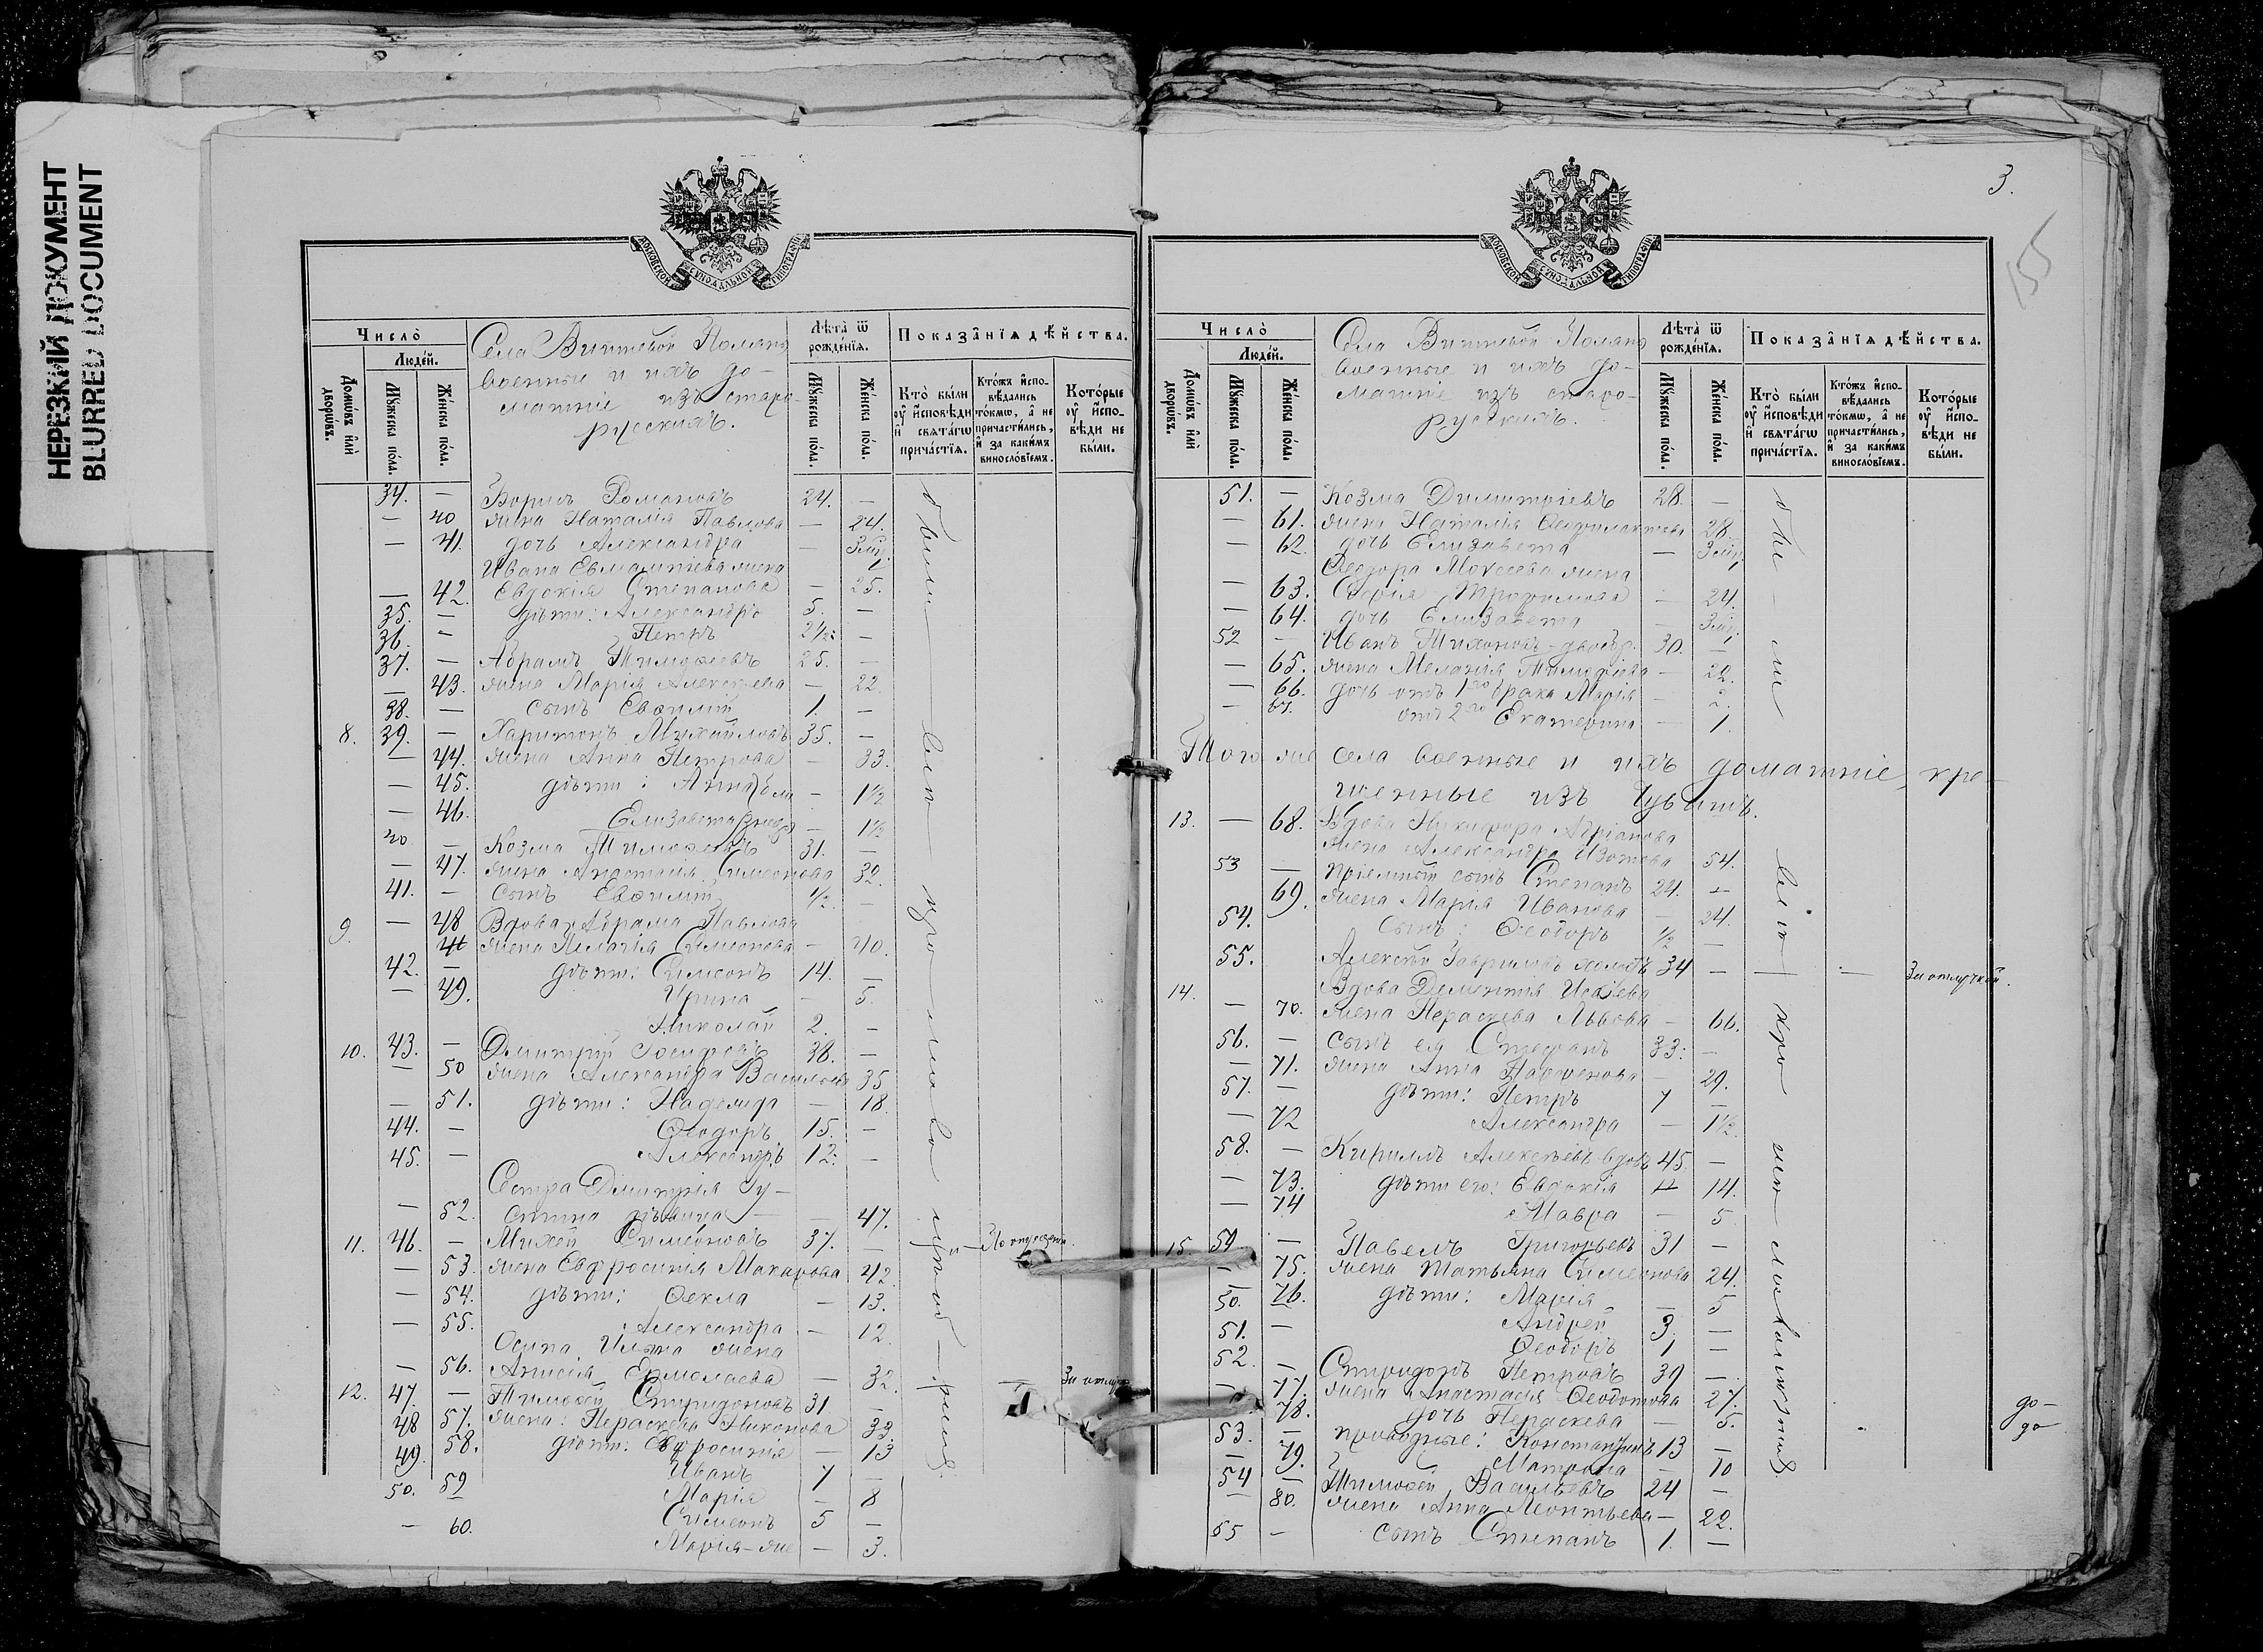 НЕРЕЗКИЙ ДОКУМЕНТ
BLURRED DOCUMENT
МОСКОВСКОЙ СѴНОДАЛЬНОЙ ТИПОГРАФІИ
Число̀
Людей.
Домѡвъ илѝ дворѡвъ.
Мꙋжеска пола.
Женска пола.
Села Вишневой Поляны
военные и ихъ до-
машніе изъ старо-
русскихъ.
Лѣта̀ ѿ рожденїѧ.
Мꙋжеска пола.
Женска пола.
Показанїѧ дѣйства.
Кто̀ были ᲂу҆ исповѣди и҆ свѧтагѡ причастїѧ.
Ктожъ исповѣдались токмѡ, а҆ не причастились, и҆ за какимъ винословїемъ.
Которые ᲂу҆ исповѣди не были.
34. — Борисъ Романовъ 24. —
— 40 жена Наталія Павлова — 24.
— 41. дочь Александра — 3 мѣс.
Ивана Евлампіева жена
— 42. Евдокія Степанова — 25.
35. — дѣти: Александръ 5. —
36. — Петръ 2½ —
37. — Абрамъ Тимоѳеевъ 25. —
— 43. жена Марія Алексѣева — 22.
38. — сынъ Евѳимій 1. —
8. 39. — Харитонъ Михайловъ 35. —
— 44. жена Анна Петрова — 33.
— 45. дѣти: Анна — 1½
— 46. Елизавета — 1½
40 — Козма Тимоѳеевъ 31. —
— 47. жена Анастасія Симеонова 32.
41. — сынъ Евѳимій ½ —
9. — 48 Вдова Абрама Павлова
жена Пелагія Симеонова — 40.
42. — дѣти: Симеонъ 14. —
— 49. Ирина — 5.
Николай 2. —
10. 43. — Димитрій Іосифовъ 38. —
— 50 жена Александра Васильева 35
— 51. дѣти: Надежда — 18.
44. — Ѳеодоръ 15. —
45. — Александръ 12. —
Сестра Димитрія Іу-
— 52. стина дѣвица — 47.
11. 46. — Михей Симеоновъ 37. —
— 53. жена Евфросинія Макарова 42.
— 54. дѣти: Ѳекла — 13.
— 55. Александра — 12
Осипа Ильина жена
— 56. Анисія Ермолаева — 32. —
12. 47. — Тимоѳей Спиридоновъ 31 —
48 57. жена: Параскева Никонова 33.
49. 58. дѣти: Евфросинія — 13
Иванъ 7 —
50. 59 Марія — 8
Симеонъ 5 —
— 60. Марія-же — 3.
были
3.
155
МОСКОВСКОЙ СѴНОДАЛЬНОЙ ТИПОГРАФІИ
Число̀
Людей.
Домѡвъ илѝ дворѡвъ.
Мꙋжеска пола.
Женска пола.
Села Вишневой Поляны
военные и ихъ до-
машніе изъ старо-
русскихъ.
Лѣта̀ ѿ рожденїѧ.
Мꙋжеска пола.
Женска пола.
Показанїѧ дѣйства.
Кто̀ были ᲂу҆ исповѣди и҆ свѧтагѡ причастїѧ.
Ктожъ исповѣдались токмѡ, а҆ не причастились, и҆ за какимъ винословїемъ.
Которые ᲂу҆ исповѣди не были.
51. — Козма Димитріевъ 28. —
— 61. жена Наталія Ѳеофилактова 28.
— 62. дочь Елизавета — 3 мѣс.
Ѳеодора Моисеева жена
— 63. Софія Трофимова — 24.
— 64. дочь Елизавета — 3 мѣс.
52 — Иванъ Тихоновъ 30. —
— 65. жена Меланія Тимофеева — 22.
— 66. дочь отъ 1го брака Марія — 2.
— 67. отъ 2го Екатерина — 1.
Того же села военные и ихъ домашніе, кре-
щенные изъ Чувашъ.
13. — 68. Вдова Никифора Адріанова
жена Александра Изотова 54.
53 — пріемный сынъ Степанъ 24. —
69. жена Марія Иванова — 24.
54. сынъ: Ѳеодоръ ½ —
55. Алексѣй Гавриловъ холостъ 34 — — — За отлучкой.
14. Вдова Дементія Исаева
— 70. жена Параскева Львова — 66.
56. — сынъ ея Стефанъ 33. —
— 71. жена Анна Парфенова — 29.
57. — дѣти: Петръ 7 —
— 72 Александра — 1½.
58. — Кириллъ Алексѣевъ вдовъ 45 —
— 73. дѣти его: Евдокія 14.
— 74 Мавра — 5
15. 59 — Павелъ Григорьевъ 31 —
— 75. жена Татьяна Симеонова 24.
— 76. дѣти: Марія — 5
50. — Андрей 3. —
51. — Ѳеодоръ 1 —
52. — Спиридонъ Петровъ 39 —
— 77. жена Анастасія Ѳеодотова 27.
78. дочь Параскева — 5.
53. — приводные: Константинъ 13 —
— 79. Матрона — 10
54 — Тимоѳей Васильевъ 24 —
— 80. жена Анна Леонтьева — 22.
55 — сынъ Степанъ 1. —
были
до-
до